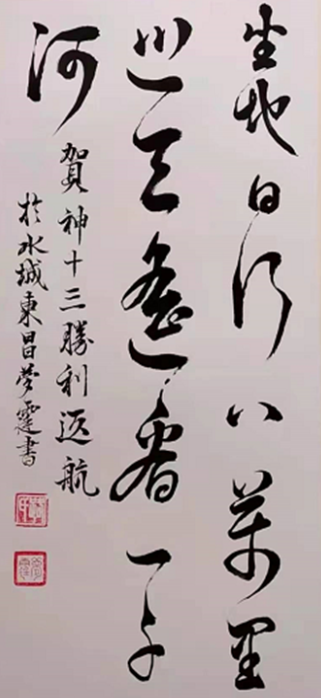 坐地日行八萬里
巡天遙看一千
河
賀神十三勝利返航
於水城東昌夢霆書